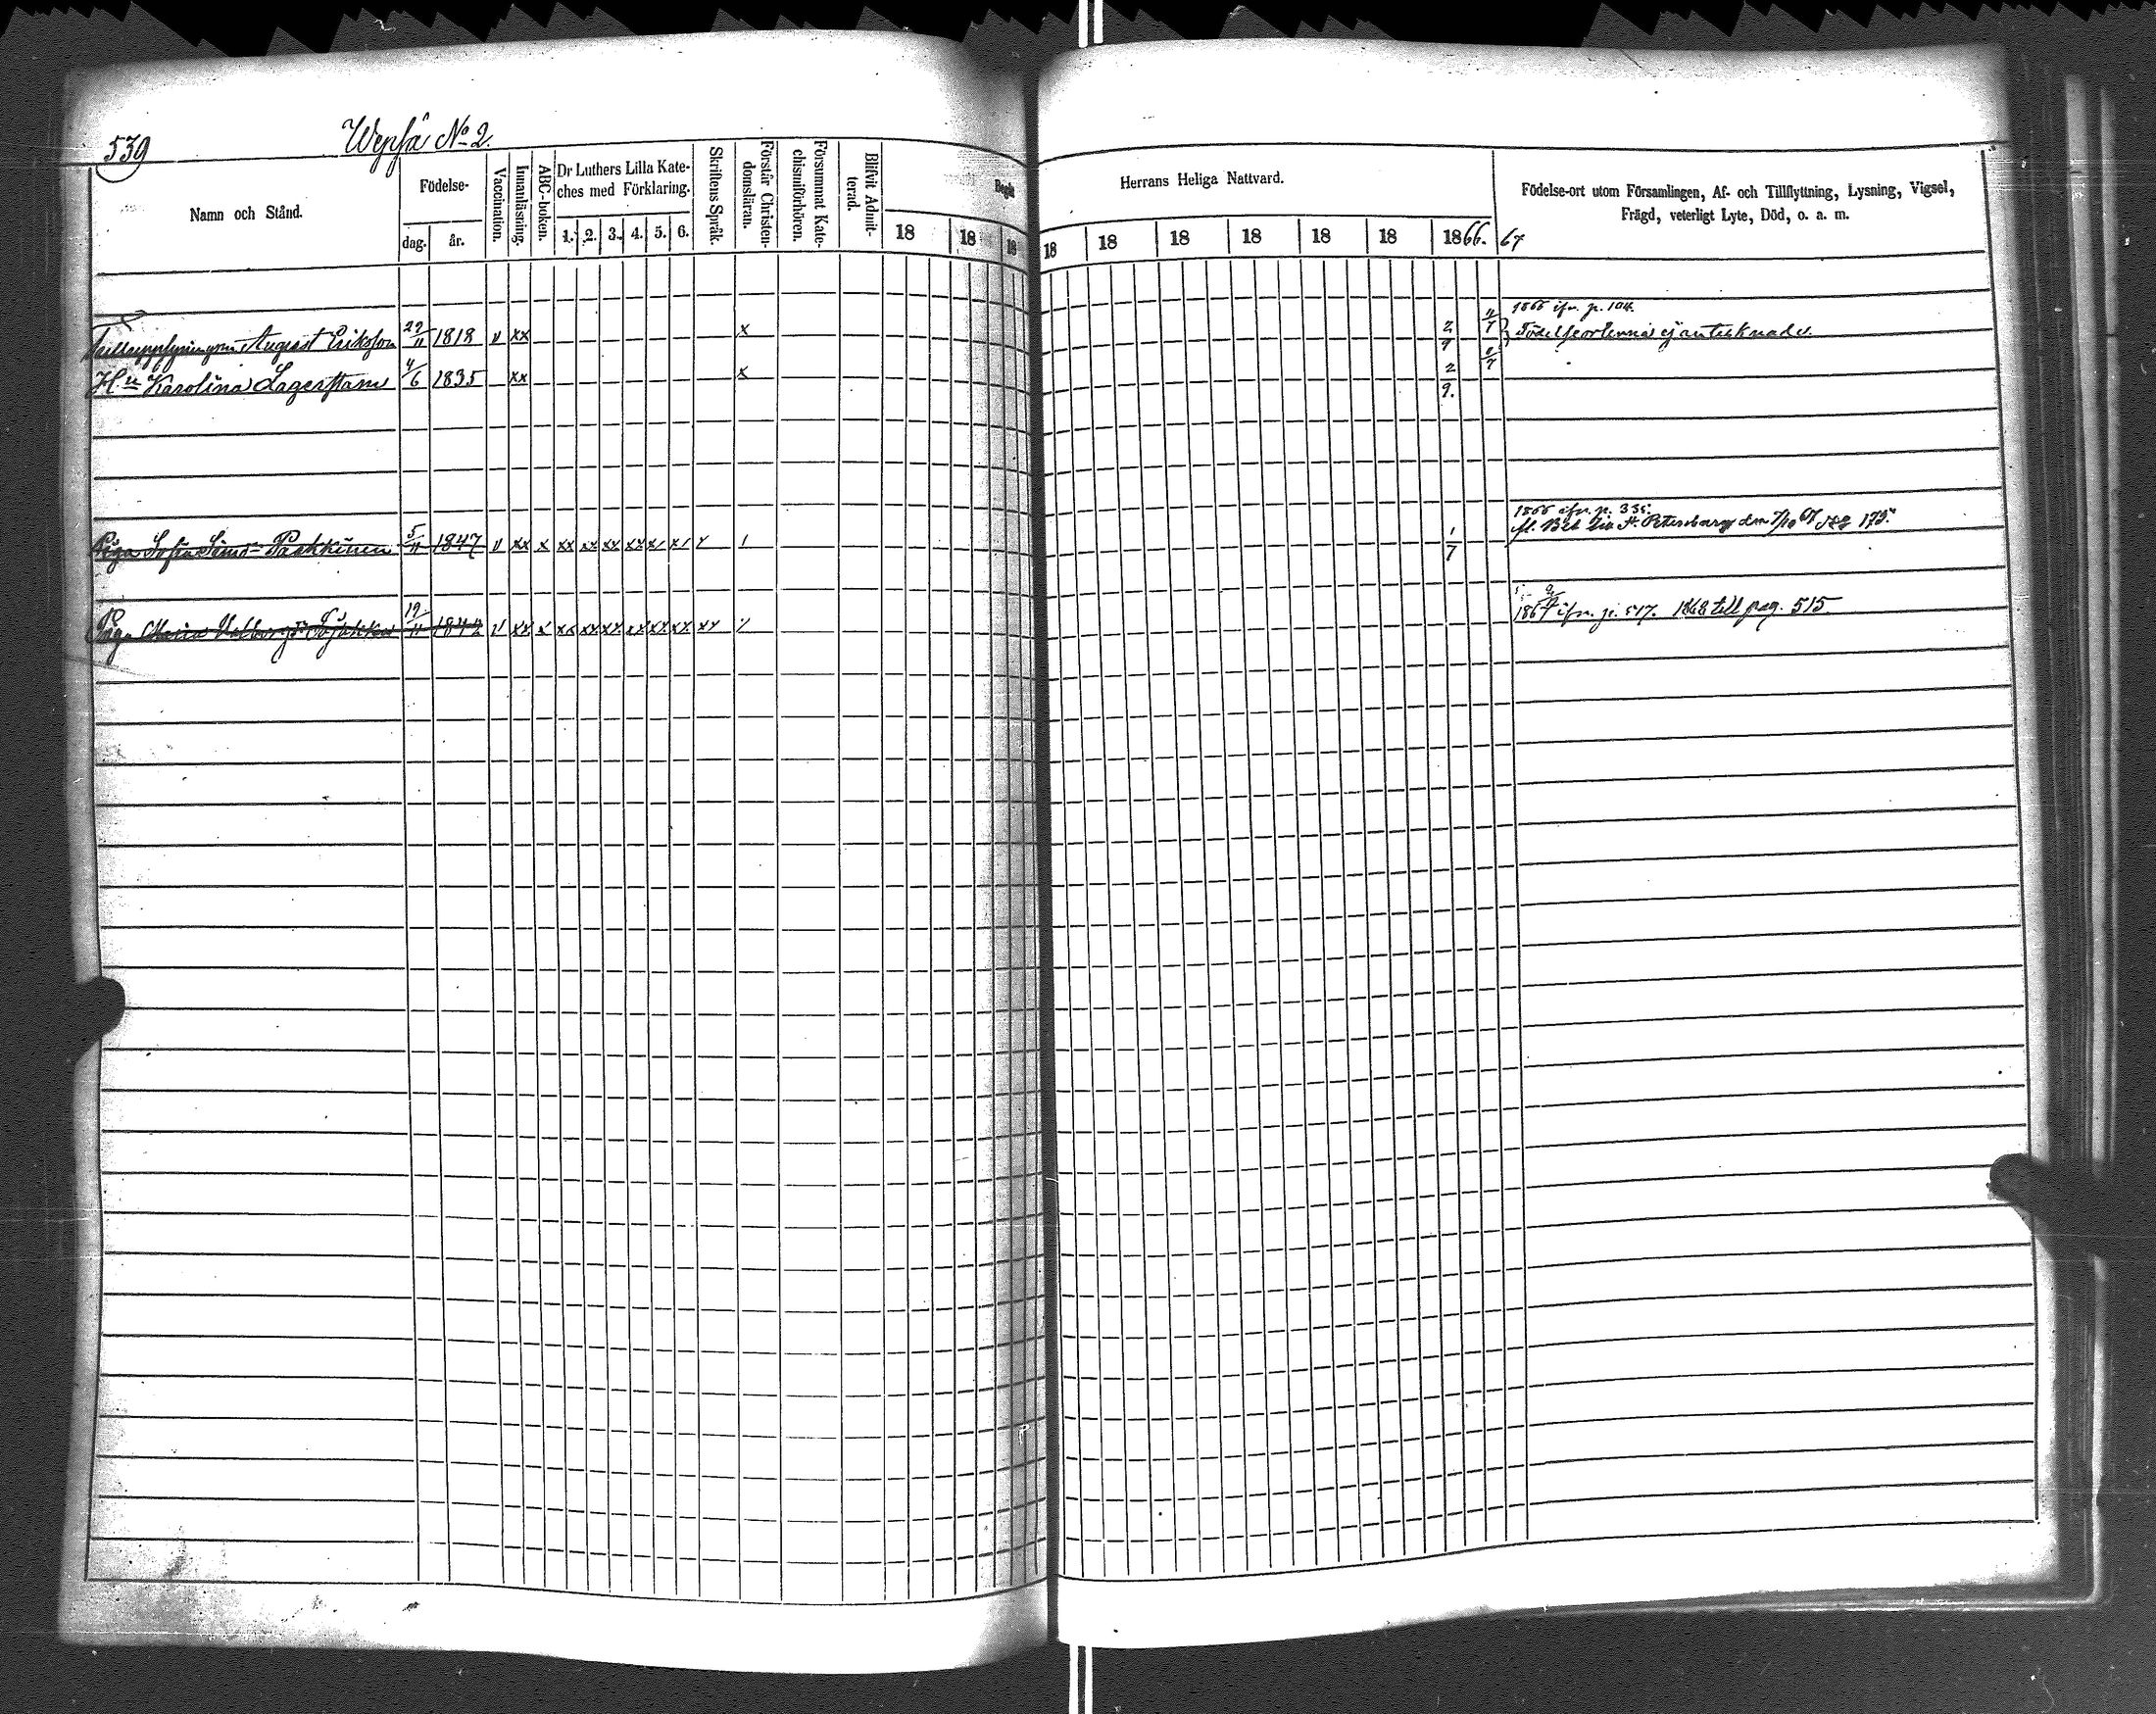 539
Wepsä No 2.
Namn och Stånd.
Födelse-
dag.
år.
Vaccination.
Innanläsning.
ABC-boken.
Dr Luthers Lilla Kate-
ches med Förklaring.
1. 2. 3. 4. 5. 6.
Skriftens Språk.
Förstår Christen-
domsläran.
Försummat Kate-
chismiförhören.
Blifvit Admit-
terad.
Begått
18 18 18
Herrans Heliga Nattvard.
18 18 18 18 18 18 1866. 67
Födelse-ort utom Församlingen, Af- och Tillflyttning, Lysning, Vigsel,
Frägd, veterligt Lyte, Död, o. a. m.
1866 ifr. p. 104.
August Eriksson 29/11 1818 v xx x 2/9
Födelseorterna ej antecknade.
H:u Karolina Lagerstam 4/6 1835 xx x 2/9.
1866 ifr. p. 335.
Piga Sofia Simo Pakkinen 5/11 1847 v xx x xx xx xx xx x/ x/ / 1/7
St. Petersburg den 7/10 67 175.
Piga Maria 19/11 1842 v xx x xx xx xx xx xx xx xx
1867 ifr. p. 517. 1868 till pag. 515